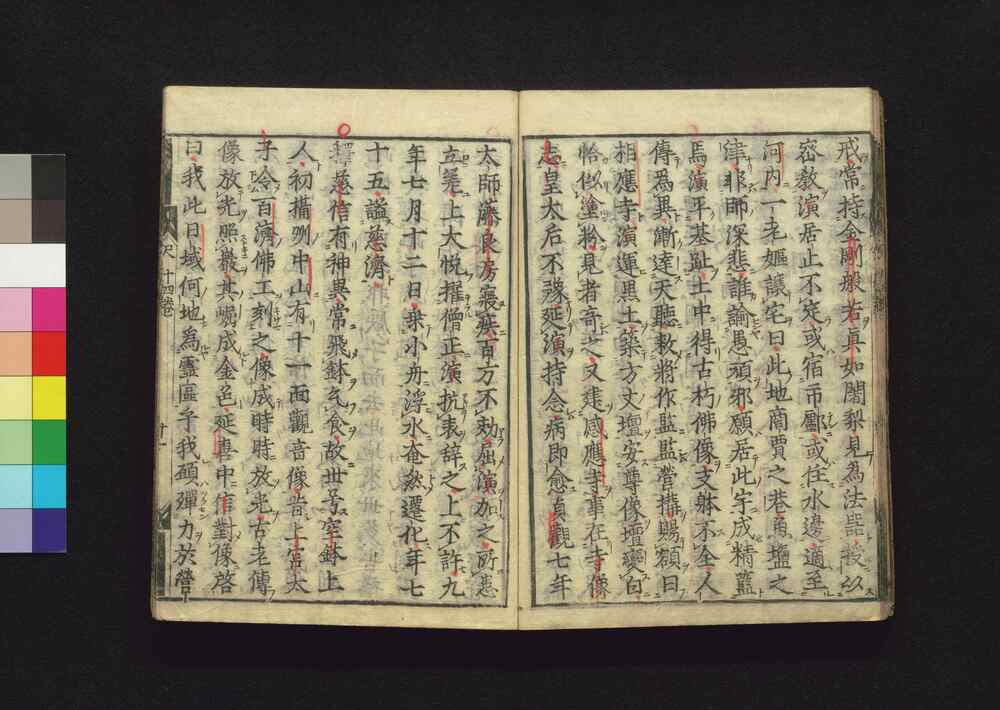 戒常持金剛般若真如闍梨見為法器授以
密教演居止不定或宿市鄽或住水邊適至
河内一老嫗讓宅曰此地商賈之巷魚塩之
津非師深悲誰諭愚頑邪願居此宇成精藍
焉演平基趾土中得古朽佛像支躰不全人
傳為異漸達天聽敕將作監監營構賜額曰
相應寺演運黒土築方丈壇安尊像壇變白
恰似塗粉見者奇之又建感應寺事在寺像
志皇太后不豫延演持念病即愈貞觀七年
太師藤良房寢疾百方不効屈演加之所患
立差上大悅擢僧正演抗表辞之上不許九
年七月十二日乗小舟浮水奄然遷化年七
十五謚慈濟
釋慈信有神異常飛鉢乞食故世号空鉢上
人初攝州中山有十一面觀音像昔上宮太
子令百濟佛工刻之像成時時放光古老傳
像放光照巖其巖成金色延喜中信對像啓
曰我此日域何地為靈區乎我頋殫力於營
尺 十四卷
十一